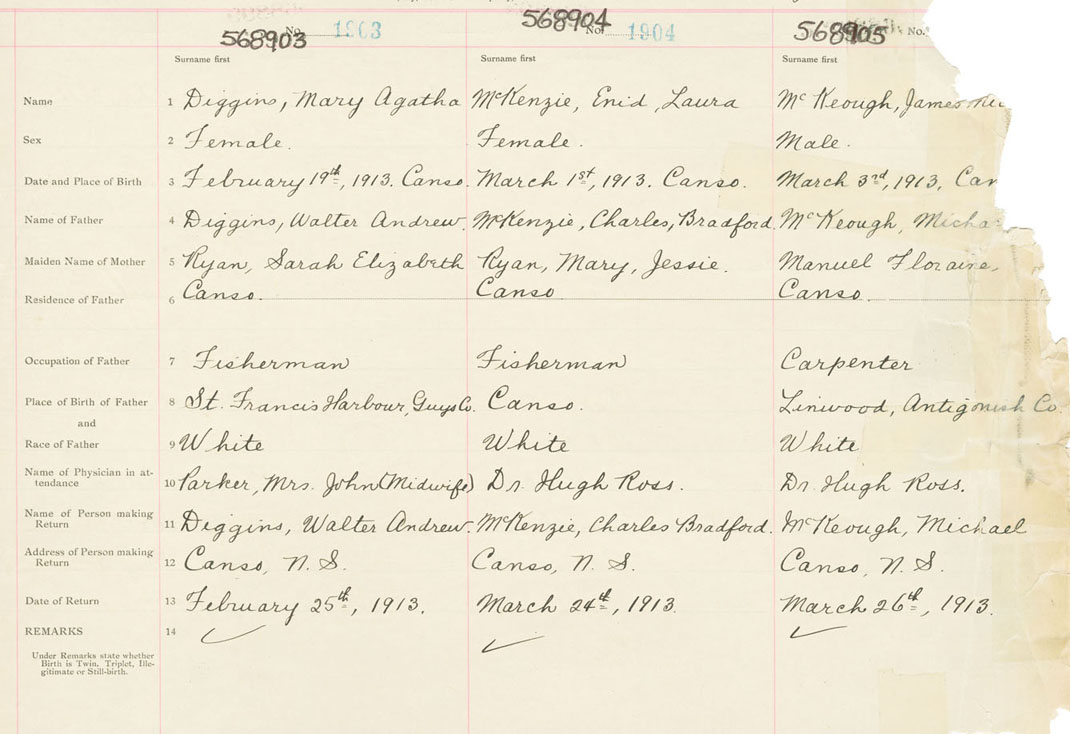 568903 No. 1903 568904 No. 1904 568905 No.
Surname first Surname first Surname first
Name 1 Diggins, Mary Agatha McKenzie, Enid, Laura Mc Keough, James
Sex 2 Female. Female. Male.
Date and Place of Birth 3 February 19th, 1913. Canso. March 1st, 1913. Canso. March 3rd, 1913, Can
Name of Father 4 Diggins, Walter Andrew. McKenzie, Charles, Bradford. McKeough, Micha
Maiden Name of Mother 5 Ryan, Sarah Elizabeth Ryan, Mary, Jessie. Manuel Floraine,
Residence of Father 6 Canso. Canso Canso.
Occupation of Father 7 Fisherman Fisherman Carpenter
Place of Birth of Father 8 St. Francis Harbour, Guys Co. Canso. Linwood, Antigonish Co.
and
Race of Father 9 White White White
Name of Physician in at-
tendance 10 Parker, Mrs. John (Midwife) Dr. Hugh Ross. Dr. Hugh Ross.
Name of Person making
Return 11 Diggins, Walter Andrew. McKenzie, Charles Bradford. McKeough, Michael
Address of Person making
Return 12 Canso, N. S. Canso, N. S. Canso, N. S.
Date of Return 13 February 25th, 1913. March 24th, 1913. March 26th, 1913.
REMARKS 14
Under Remarks state whether
Birth is Twin, Triplet, Ille-
gitimate or Still-birth.